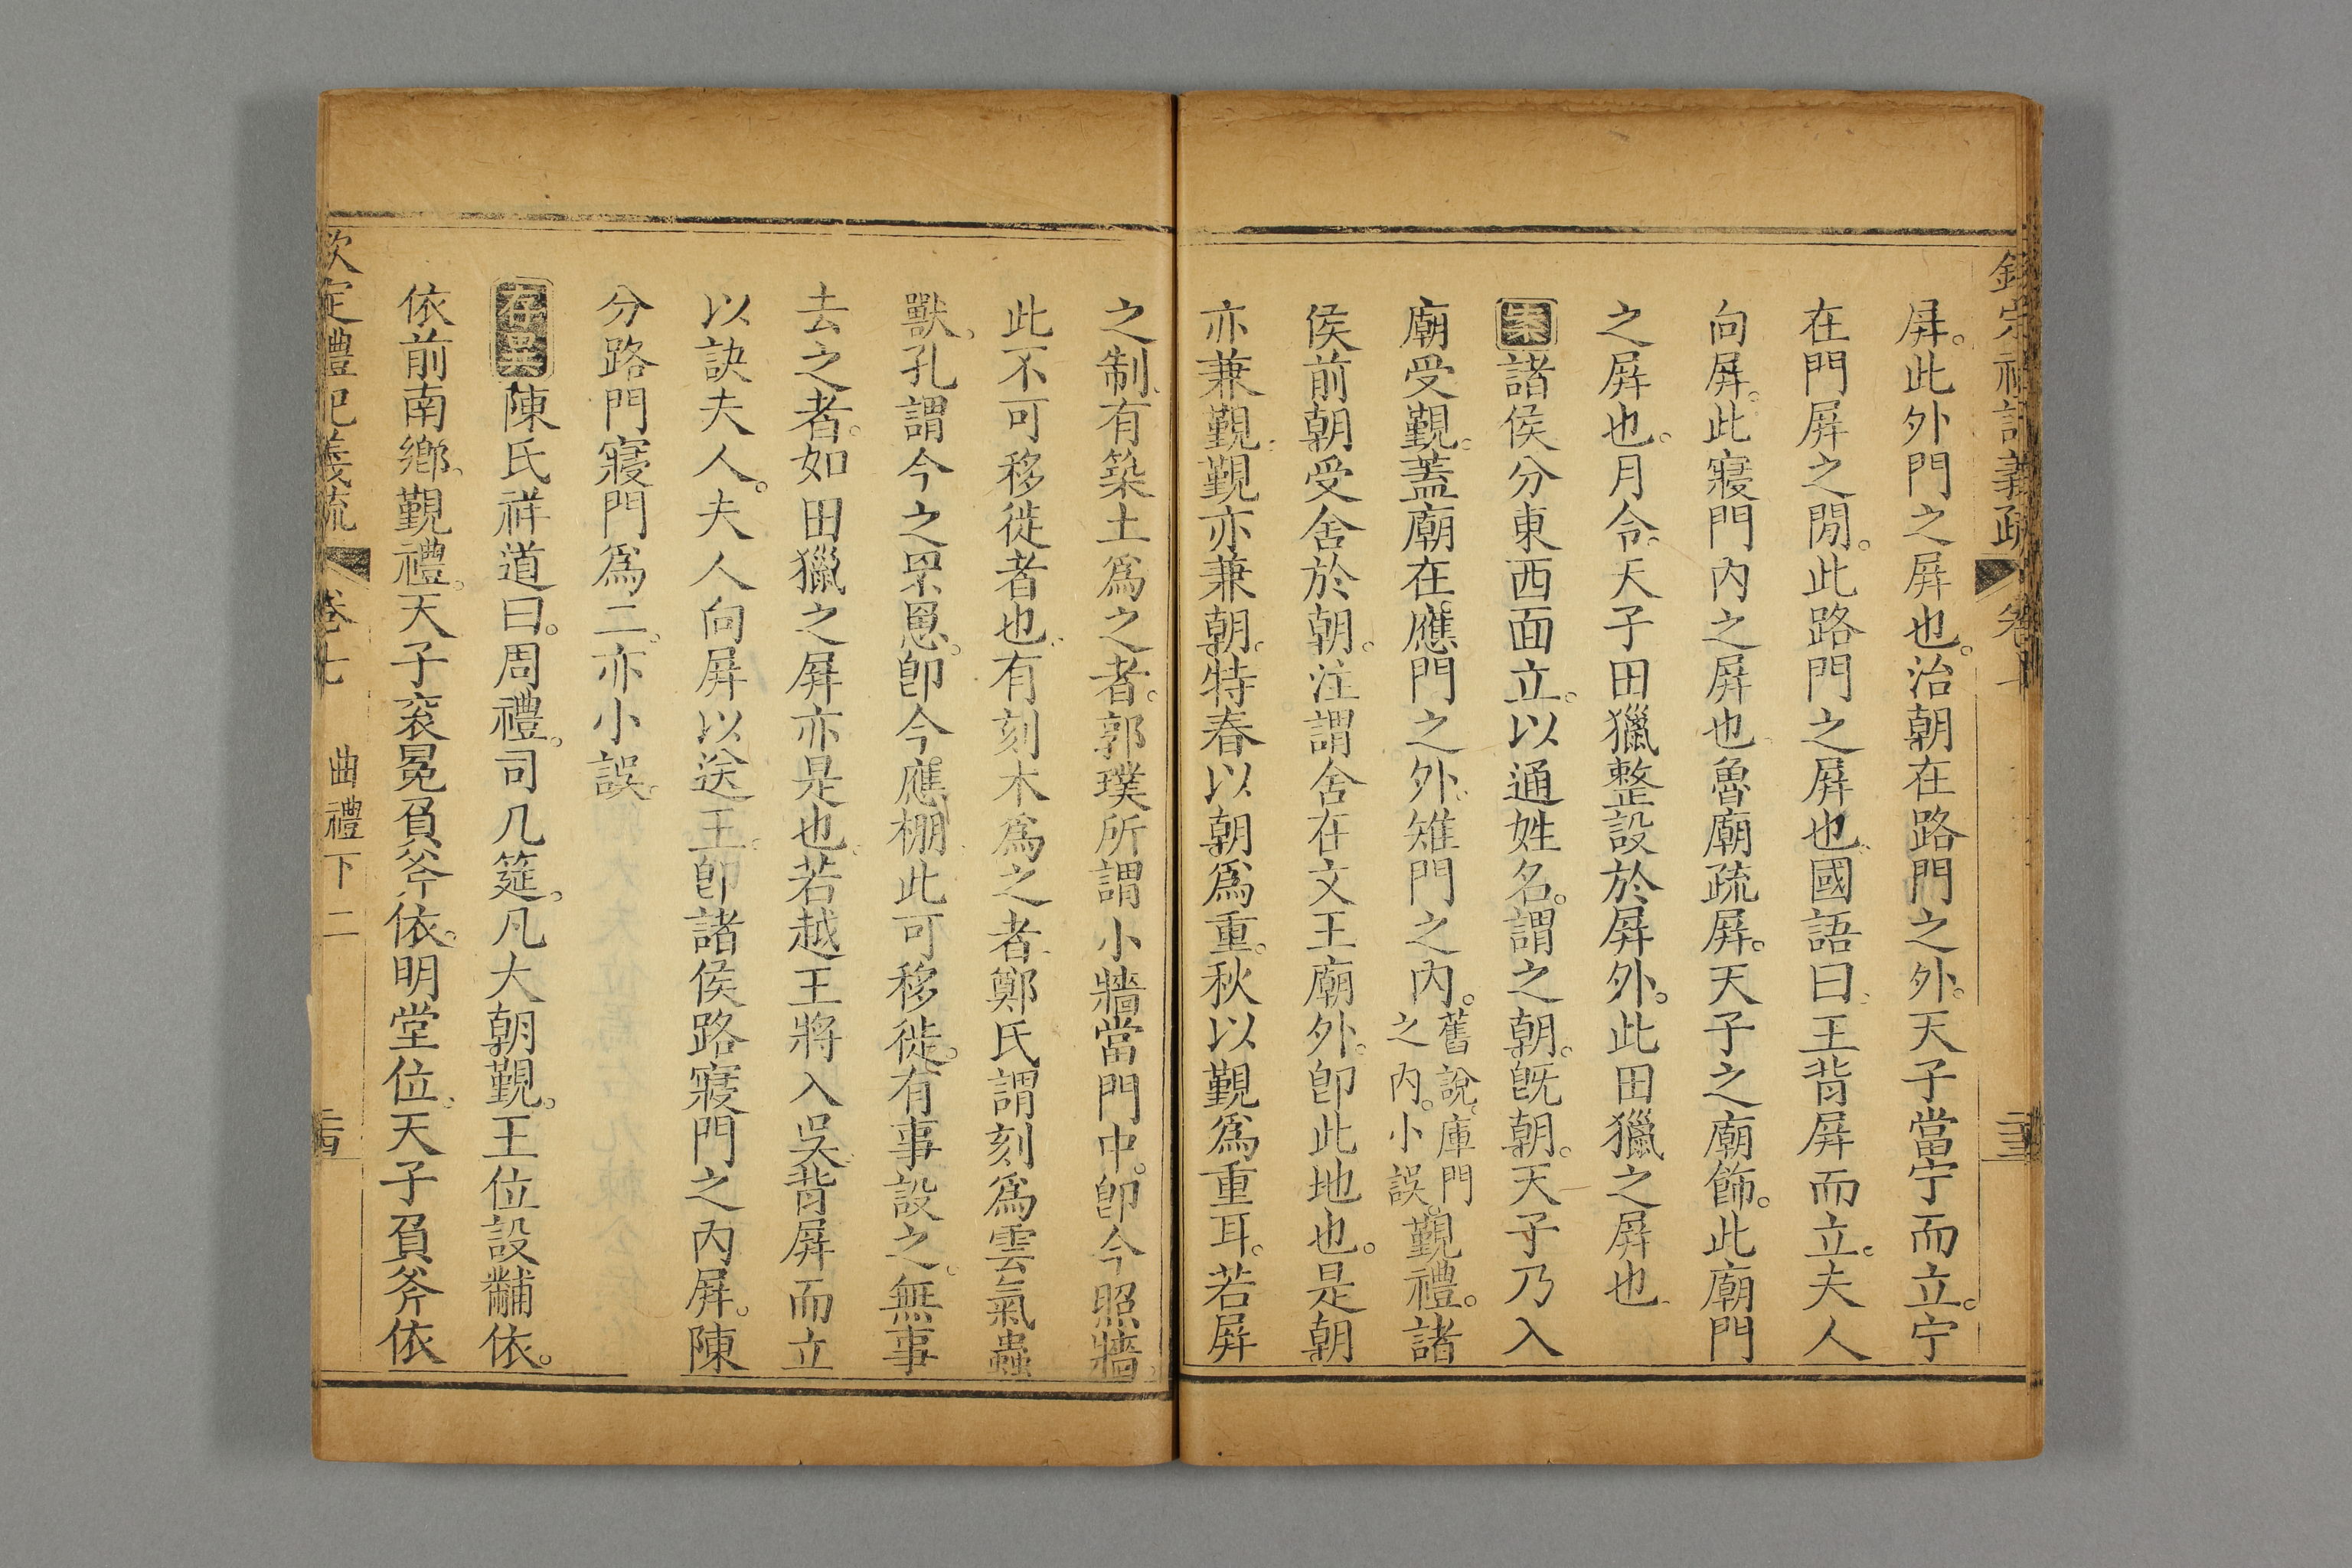 屏。此外門之屏也。治朝在路門之外。天子當宁而立。宁
在門屏之閒。此路門之屏也。國語曰。王背屏而立。夫人
向屏。此寢門內之屏也。魯廟疏屏。天子之廟飾。此廟門
之屏也。月令。天子田獵整設於屏外。此田獵之屏也。
案諸侯分東西面立。以通姓名。謂之朝。旣朝。天子乃入
廟受覲。蓋廟在應門之外。雉門之內。舊說。庫門之內。小誤。覲禮。諸
侯前朝受舍於朝。注謂舍在文王廟外。卽此地也。是朝
亦兼覲。覲亦兼朝。特春以朝爲重。秋以覲爲重耳。若屏
之制。有築土爲之者。郭璞所謂小牆當門中。卽今照牆。
此不可移徙者也。有刻木爲之者。鄭氏謂刻爲雲氣蟲
獸。孔謂今之罘罳。卽今應棚。此可移徙。有事設之。無事
去之者。如田獵之屏亦是也。若越王將入吳。背屏而立
以訣夫人。夫人向屏以送王。卽諸侯路寢門之內屏。陳
分路門寢門爲二。亦小誤。
存異陳氏祥道曰。周禮。司几筵。凡大朝覲。王位設黼依。
依前南鄉。覲禮。天子袞冕負斧依。明堂位。天子負斧依
欽定禮記義疏 卷七 曲禮下二